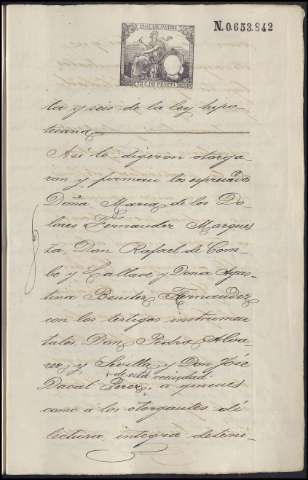 N.0.653.842
ta y seis de la ley hypo-
tecaria
Así lo digeron otorga-
ron y firman los expresados
Doña Maria de los Do-
lores Fernandez Marques-
ta, Don Rafael de Com-
be y Doña Agus-
tina Benitez Fernandez
con los testigos instrumen-
tales Don Pedro Alva-
rez y Sevilla y Don José
de esta vecindad
Dacal Perez, a quienes
como a los otorgantes dí
lectura integra deteni-